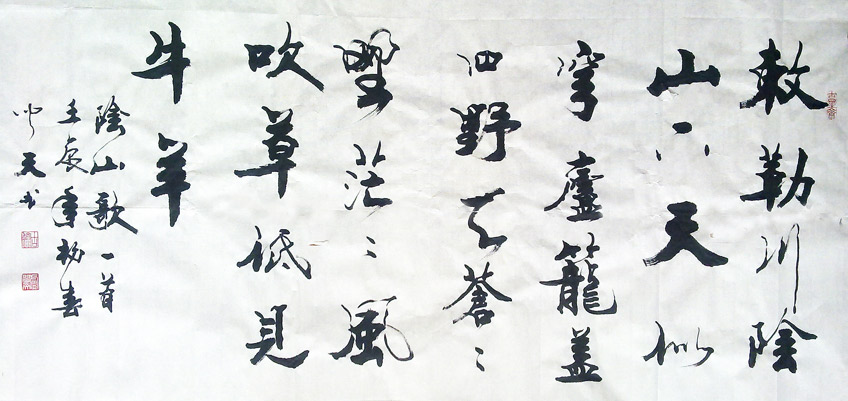 敕勒川陰
山下天似
穹廬籠蓋
四野天蒼〻
野茫〻風
吹草低見
牛羊
陰山歌一首
壬辰年初春
天书